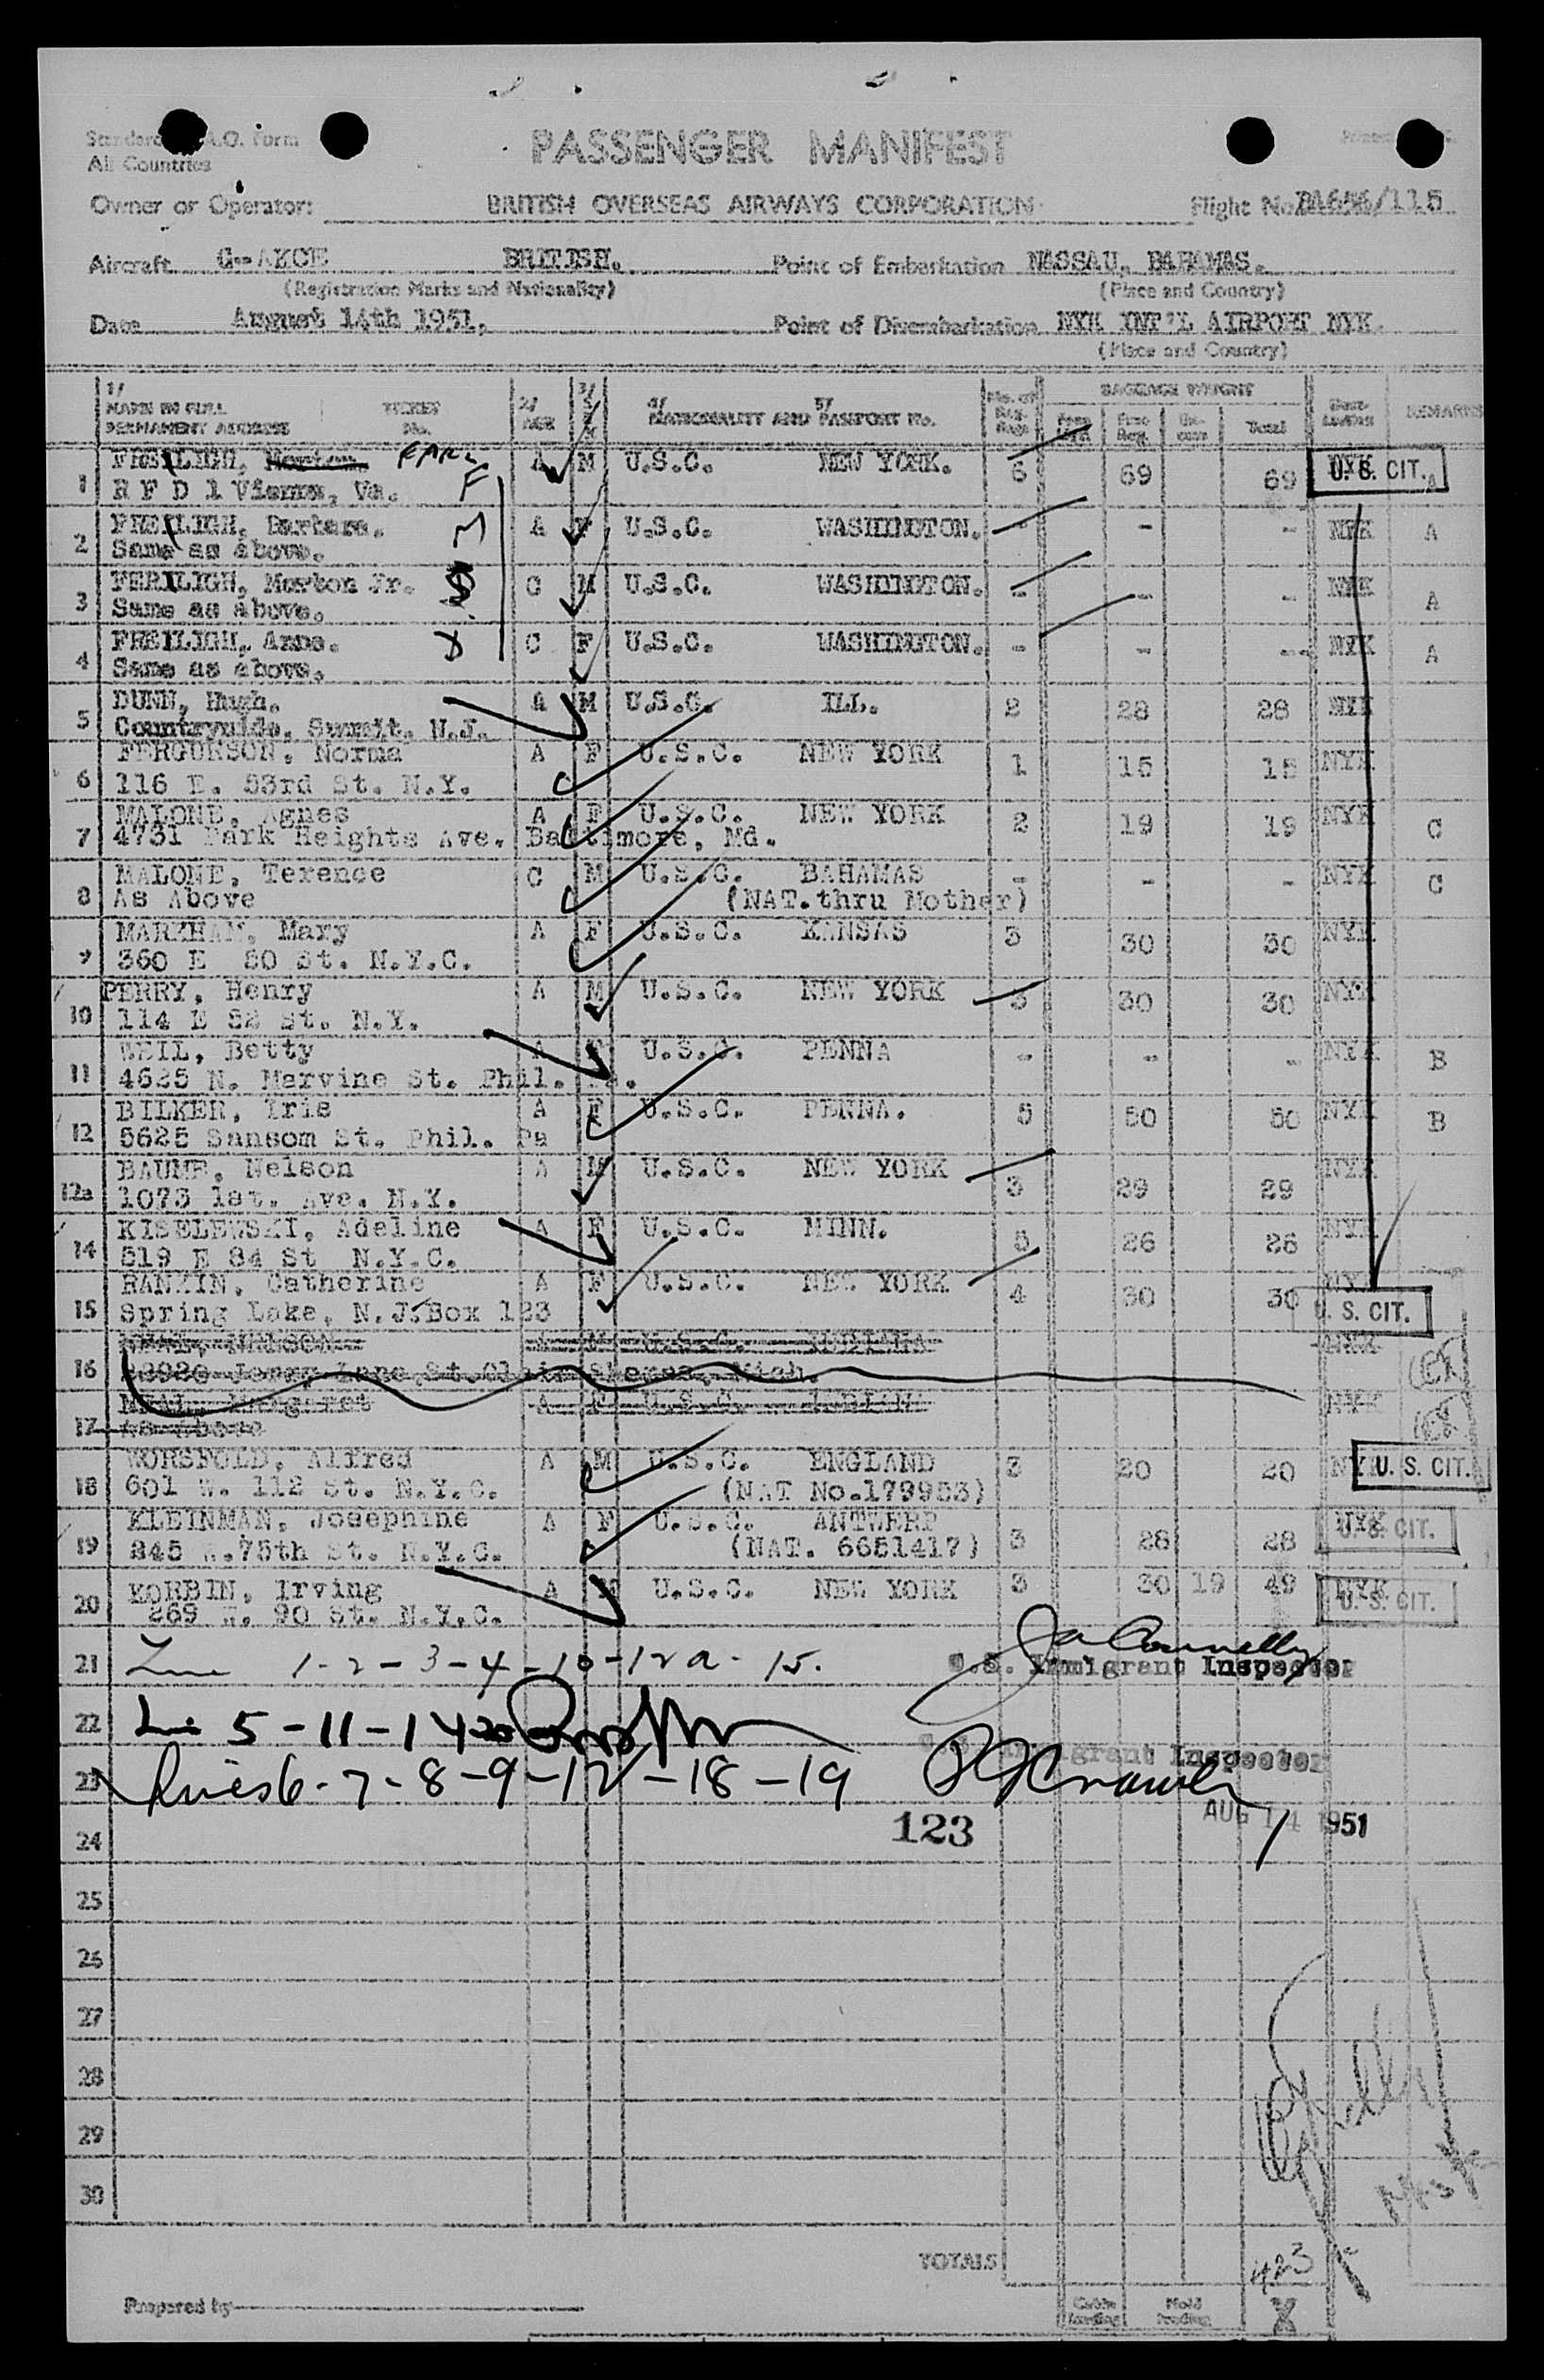 All Countries
PASSENGER MANIFEST
Owner or Operator: BRITISH OVERSEAS AIRWAYS CORPORATION Flight No.
Aircraft G-AKCE BRITISH. Point of Embarkation NASSAU, BAHAMAS.
(Registration Marks and Nationality) (Place and Country)
Date August 14th 1951. Point of Disembarkation NYK INT'L AIRPORT NYK.
(Place and Country)
1/ 2/ 3/ 4/ 5/ BAGGAGE WEIGHT
NAME IN FULL TICKET AGE NATIONALITY AND PASSPORT No. Total REMARKS
PERMANENT ADDRESS No.
1 A M U.S.C. NEW YORK. 6 69 69 NYK U. S. CIT. A
R F D 1 Vienna, Va. F
2 Barbara. M A F U.S.C. WASHINGTON. - - - NYK A
Same as above.
3 Morton Jr. C M U.S.C. WASHINGTON. - - - NYK A
Same as above.
4 Anne. C F U.S.C. WASHINGTON. - - - NYK A
Same as above.
5 DUNN, Hugh. A M U.S.C. ILL. 2 28 28 NYK
Countryside, Summit, N.J.
6 FERGURSON, Norma A F U.S.C. NEW YORK 1 15 15 NYK
116 E. 53rd St. N.Y.
7 MALONE, Agnes A F U.S.C. NEW YORK 2 19 19 NYK C
4731 Park Heights Ave. Baltimore, Md.
8 MALONE, Terence C M U.S.C. BAHAMAS - - - NYK C
As Above (NAT.thru Mother)
9 MARKHAM, Mary A F U.S.C. KANSAS 3 30 30 NYK
360 E 80 St. N.Y.C.
10 PERRY, Henry A M U.S.C. NEW YORK 3 30 30 NYK
114 E 82 St. N.Y.
11 WEIL, Betty A F U.S.C. PENNA - - - NYK B
4625 N. Marvine St. Phil. Pa.
12 BILKER, Iris A F U.S.C. PENNA. 5 50 50 NYK B
5625 Sansom St. Phil. Pa
12a Nelson A M U.S.C. NEW YORK 3 29 29 NYK
1073 1st. Ave. N.Y.
14 KISELEWSKI, Adeline A F U.S.C. MINN. 26 26 NYK
519 E 84 St N.Y.C.
15 RANKIN, Catherine A F U.S.C. NEW YORK 4 30 30 NYK
Spring Lake, N.J. Box 123 U. S. CIT.
16 A M U.S.C. INDIANA NYK
St.Clair Shores, Mich.
17 NEAL, Margaret A F U.S.C. INDIANA NYK
As Above
18 WORSFOLD, Alfred A M U.S.C. ENGLAND 3 20 20 NYK U. S. CIT.
601 W. 112 St. N.Y.C. (NAT No.179953)
19 KLEINMAN, Josephine A F U.S.C. ANTWERP 3 28 28 NYK U. S. CIT.
345 W.75th St. N.Y.C. (NAT. 6651417)
20 KORBIN, Irving A M U.S.C. NEW YORK 3 30 19 49 NYK U. S. CIT.
269 W. 90 St. N.Y.C.
21 Line 1-2-3-4-10-12a-15. U.S. Immigrant Inspector
22 5-11-14-20
Immigrant Inspector
23 Lines 6-7-8-9-12-18-19
123 AUG 14 1951
24
25
26
27
28
29
30
TOTALS 423
Prepared by